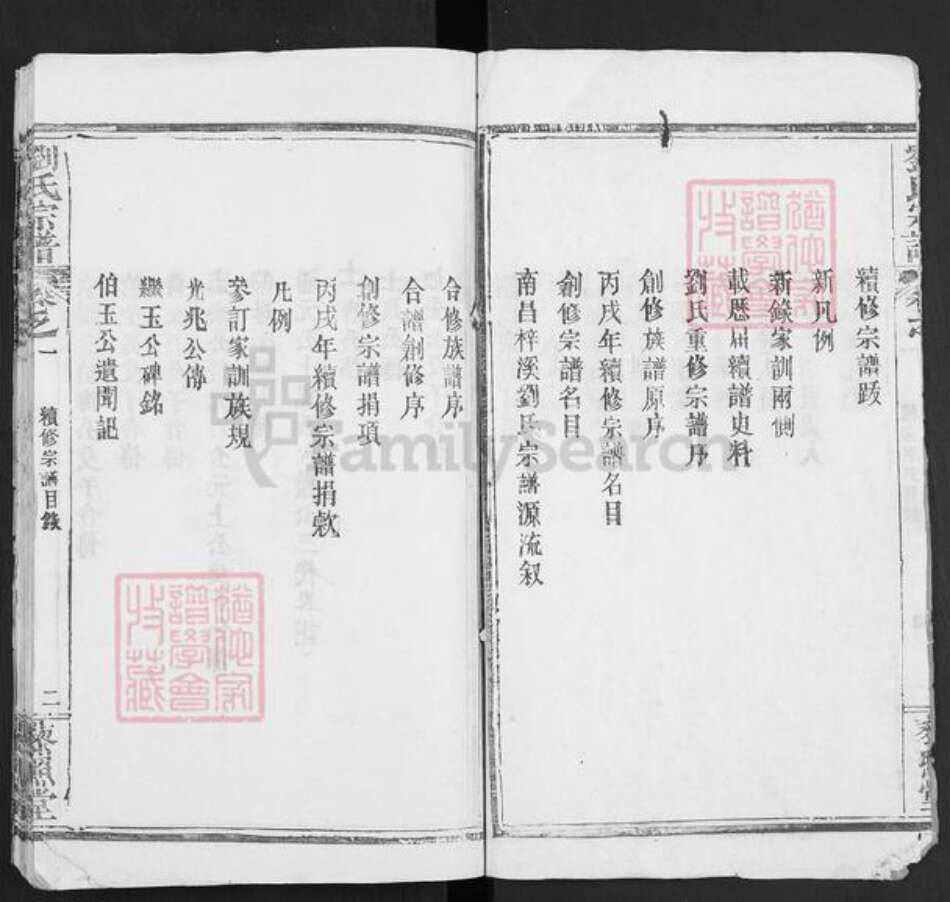 續修宗譜跋
新凡例
新錄家訓兩側
載歷屆續譜史料
劉氏重修宗譜序
創修族譜原序
丙戌年續修宗譜名目
創修宗譜名目
南昌梓溪劉氏宗譜源流叙
合修族譜序
合譜創修序
創修宗譜捐項
丙戌年續修宗譜捐欵
凡例
參訂家訓族規
光兆公傳
繼玉公碑銘
伯玉公遺聞記
劉氏宗譜
卷之一
續修宗譜目錄
二
藜照堂
FamilySearch
譜學會
收藏